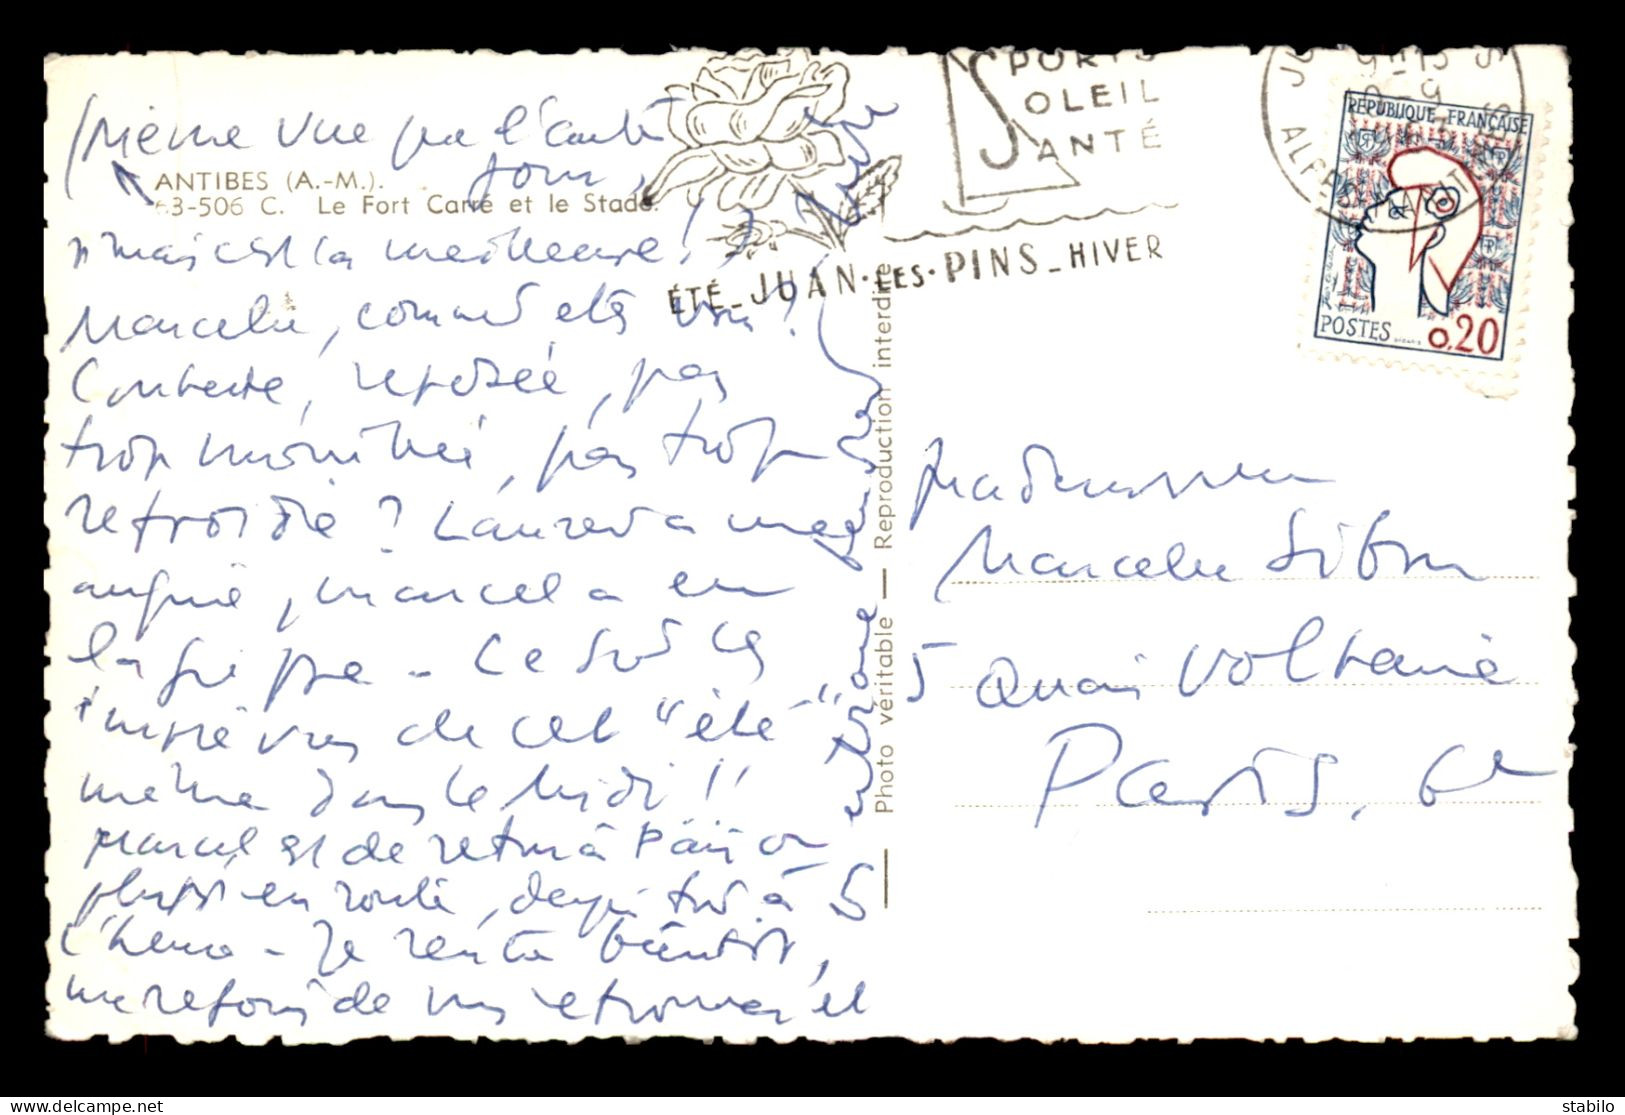 (Même vue que l'autre
jour,
ANTIBES (A.-M.).
63-506 C. Le Fort Carré et le Stade.
mais c'est la meilleure !)
Marcelle, comment êtes vous ?
Contente, reposée, pas
trop mouillée, pas trop
refroidie ? Laurent a une
angine, Marcel a eu
la grippe - Ce sont les
imprévus de cet "été"
même dans le midi !!
Marcel est de retour à Paris ou
plutôt en route, depuis
l'heure - Je rentre bientôt,
me réjouis de vous retrouver et
vous embrasse
Photo véritable — Reproduction interdite
SPORTS
SOLEIL
SANTÉ
ÉTÉ_JUAN·LES·PINS_HIVER
ALPES MARITIMES
RÉPUBLIQUE FRANÇAISE
POSTES 0,20
Mademoiselle
Marcelle Sibon
5 Quai Voltaire
Paris, 6e
stabilo